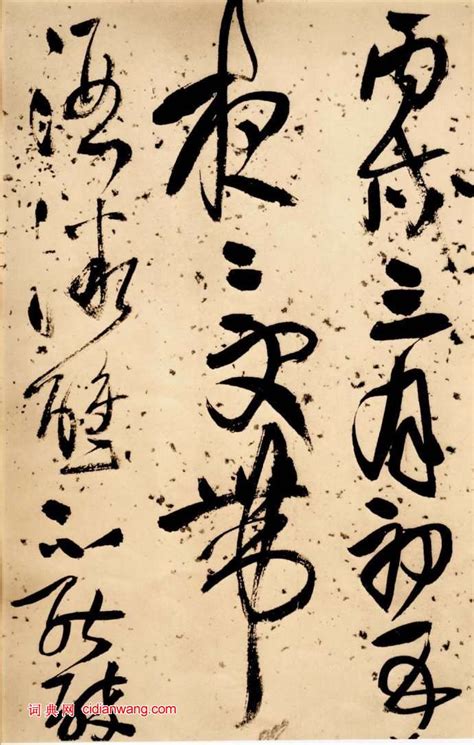 丙戌三月初五
夜三更带
酒 不能
词典网 cidianwang.com